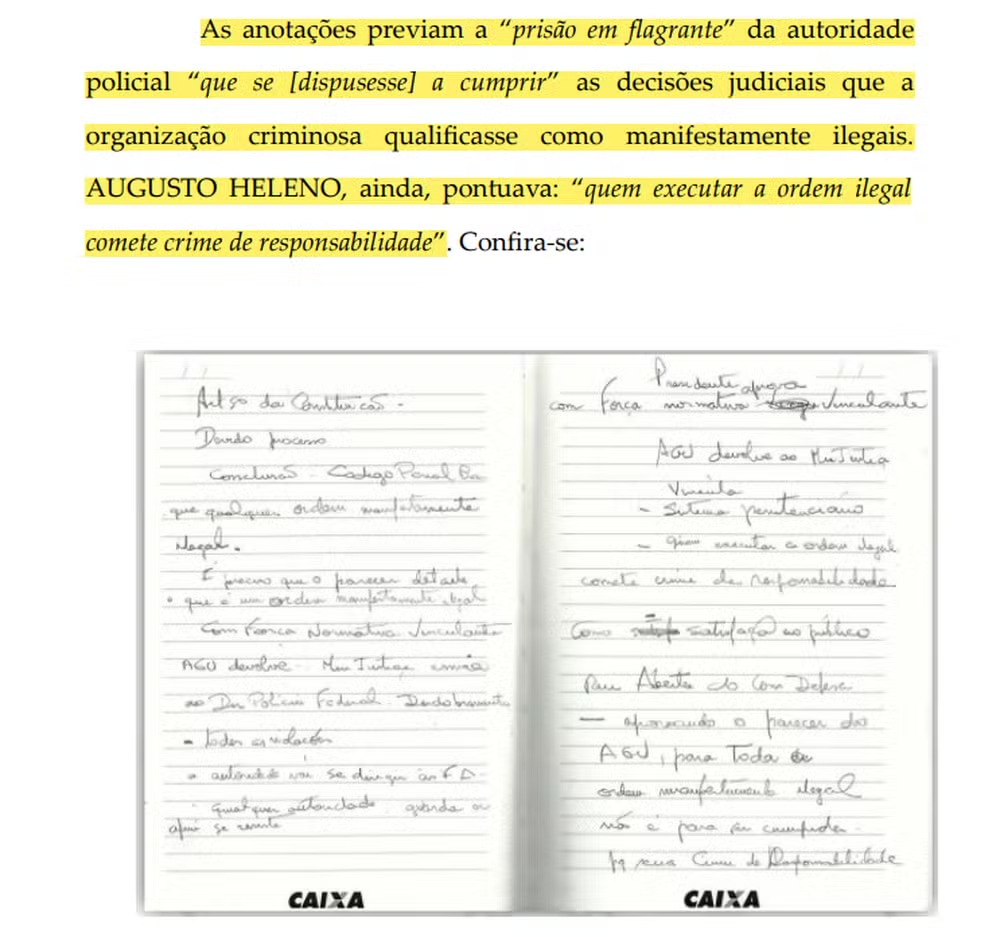 As anotações previam a “prisão em flagrante” da autoridade
policial “que se [dispusesse] a cumprir” as decisões judiciais que a
organização criminosa qualificasse como manifestamente ilegais.
AUGUSTO HELENO, ainda, pontuava: “quem executar a ordem ilegal
comete crime de responsabilidade”. Confira-se:
Artigo da Constituição -
Devido processo
Conclusão - Codigo Penal
que qualquer ordem manifestamente
ilegal.
É preciso que o parecer detalhe
que é uma ordem manifestamente ilegal
Com Força Normativa Vinculante
AGU devolve Min Justiça envia
ao Polícia Federal
- todas as
autoridade vai se dirigir
Qualquer autoridade
se
CAIXA
Presidente aprova
com Força normativa Vinculante
AGU devolve ao Min Justiça
Vincula
- Sistema penitenciário
- quem executar a ordem ilegal
comete crime de responsabilidade
Como satisfação ao público
Defesa
— aprovando o parecer da
AGU, para Toda
ordem manifestamente ilegal
não é para ser cumprida -
Crime de Responsabilidade
CAIXA